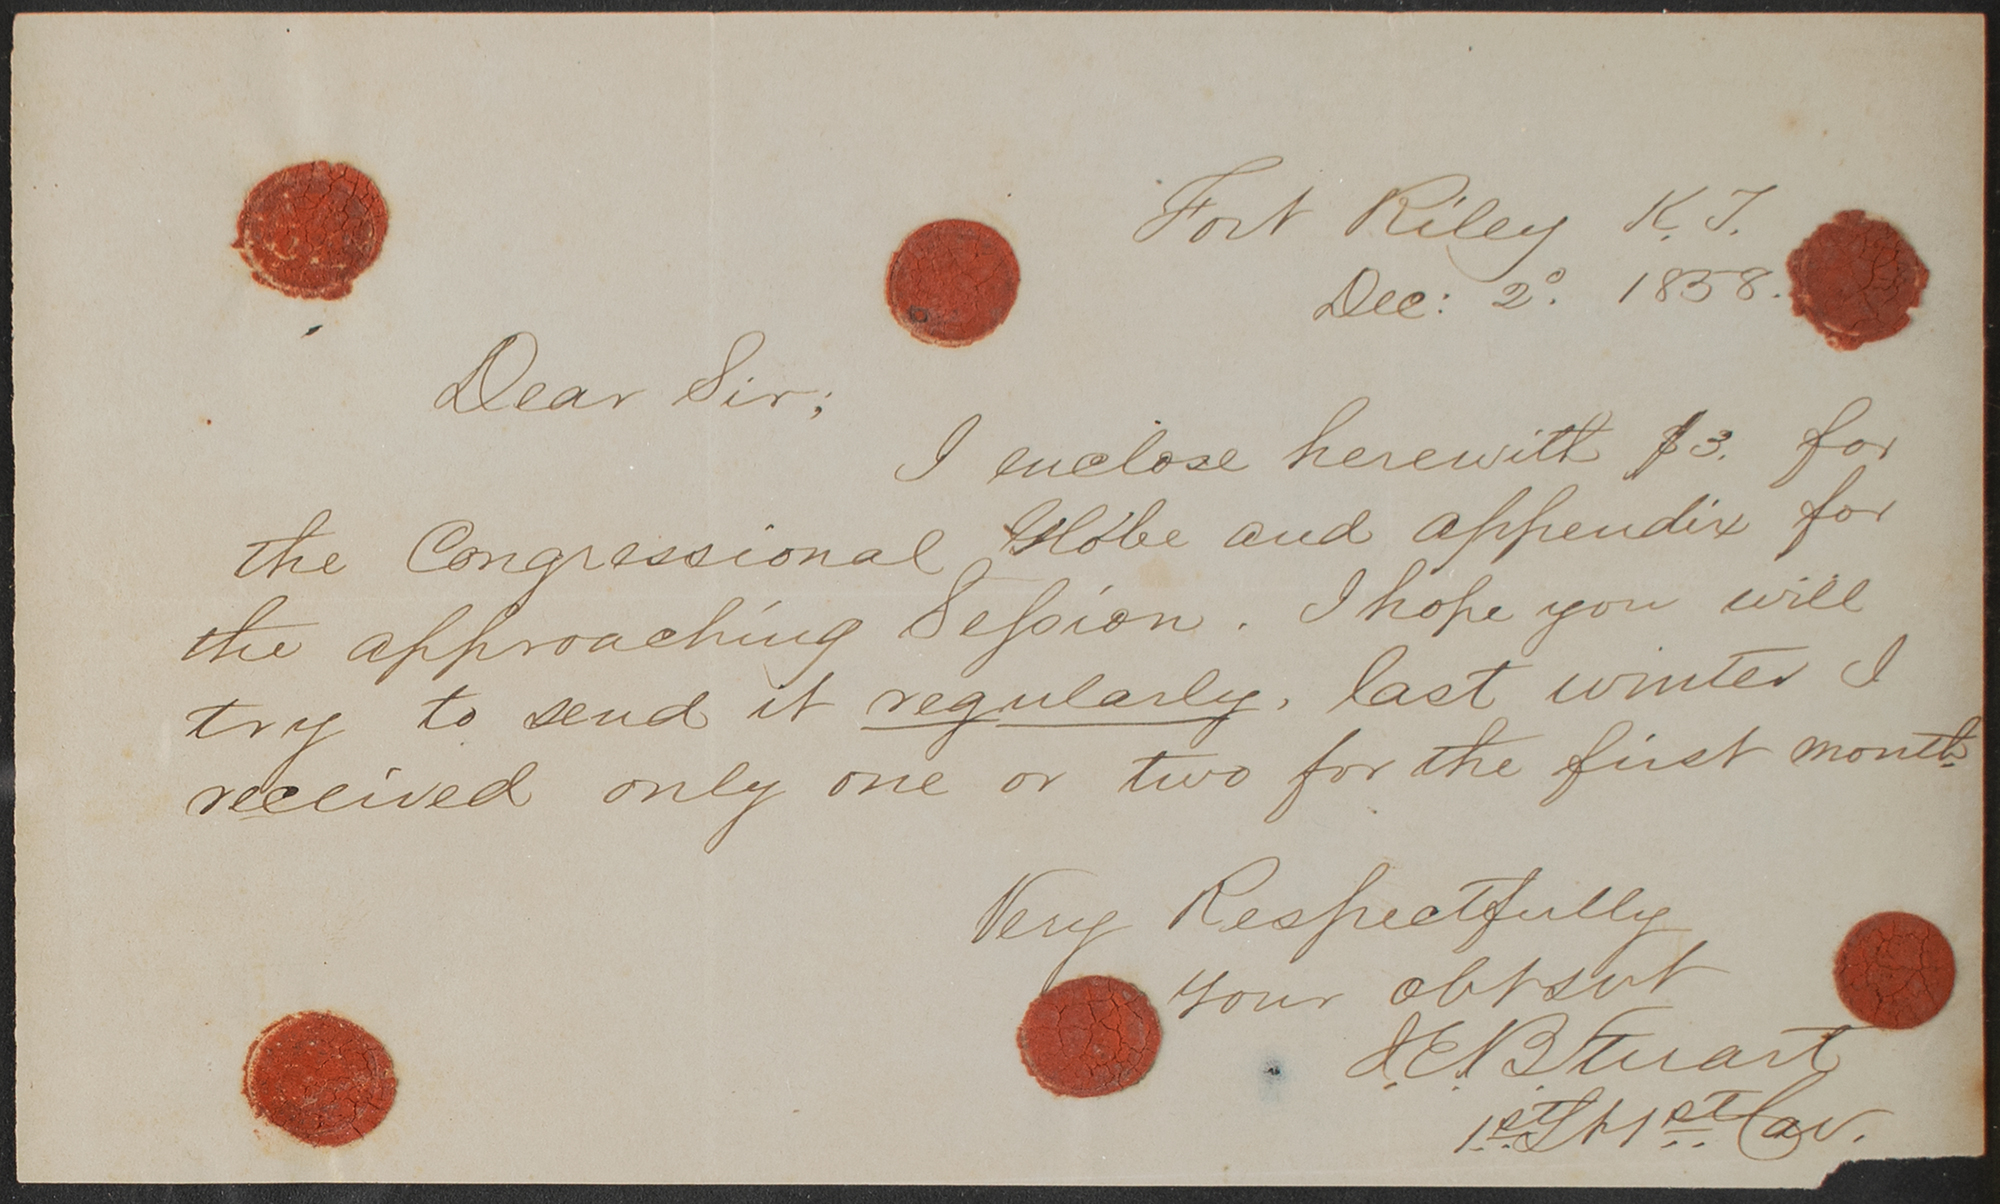 Fort Riley K. T.
Dec: 2°. 1858.
Dear Sir;
I enclose herewith $3. for
the Congressional Globe and appendix for
the approaching Session. I hope you will
try to send it regularly, last winter I
received only one or two for the first month.
Very Respectfully
Your obt svt
J. E. B. Stuart
1st Lt 1st Cav.